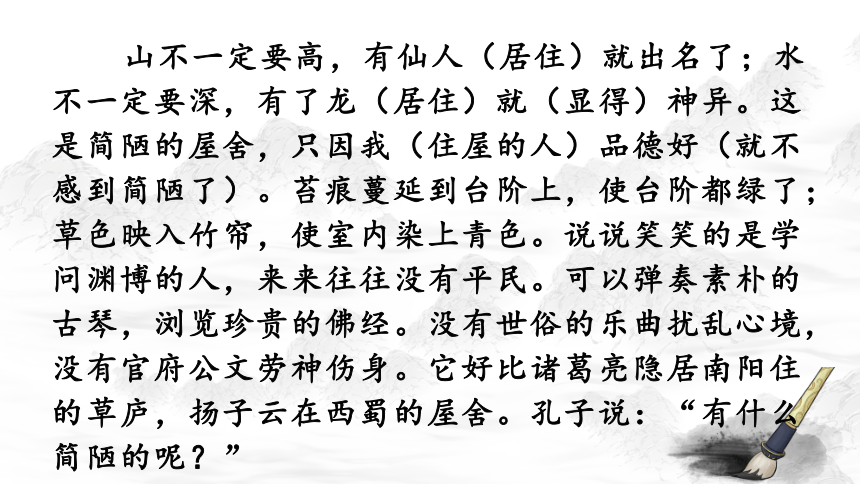 山不一定要高，有仙人（居住）就出名了；水
不一定要深，有了龙（居住）就（显得）神异。这
是简陋的屋舍，只因我（住屋的人）品德好（就不
感到简陋了）。苔痕蔓延到台阶上，使台阶都绿了；
草色映入竹帘，使室内染上青色。说说笑笑的是学
问渊博的人，来来往往没有平民。可以弹奏素朴的
古琴，浏览珍贵的佛经。没有世俗的乐曲扰乱心境，
没有官府公文劳神伤身。它好比诸葛亮隐居南阳住
的草庐，扬子云在西蜀的屋舍。孔子说：“有什么
简陋的呢？”